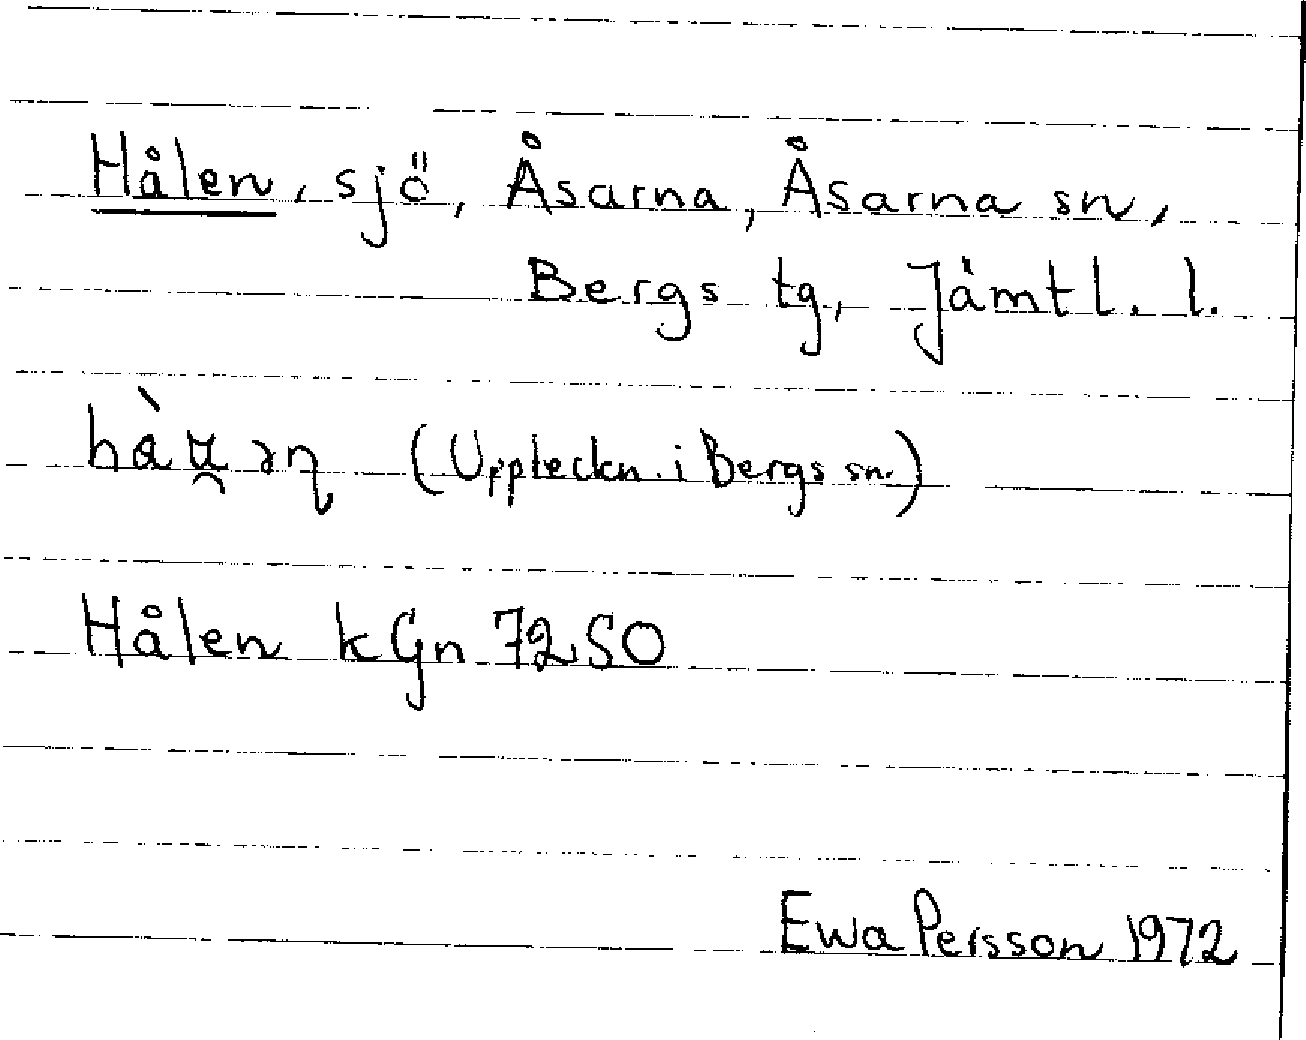 Hålen, sjö, Åsarna, Åsarna sn,
Bergs tg, Jämtl. l.
(Uppteckn. i Bergs sn.)
Hålen kGn 72SO
Ewa Persson 1972